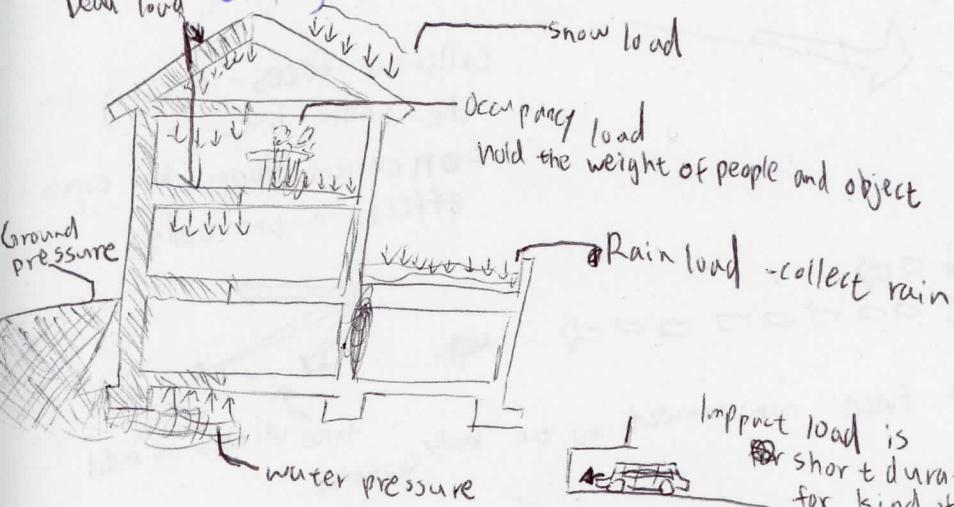 Dead load
Snow load
Occupancy load
hold the weight of people and object
Ground
pressure
Rain load -collect rain
water pressure
Imppact load is
for short dura
for kind